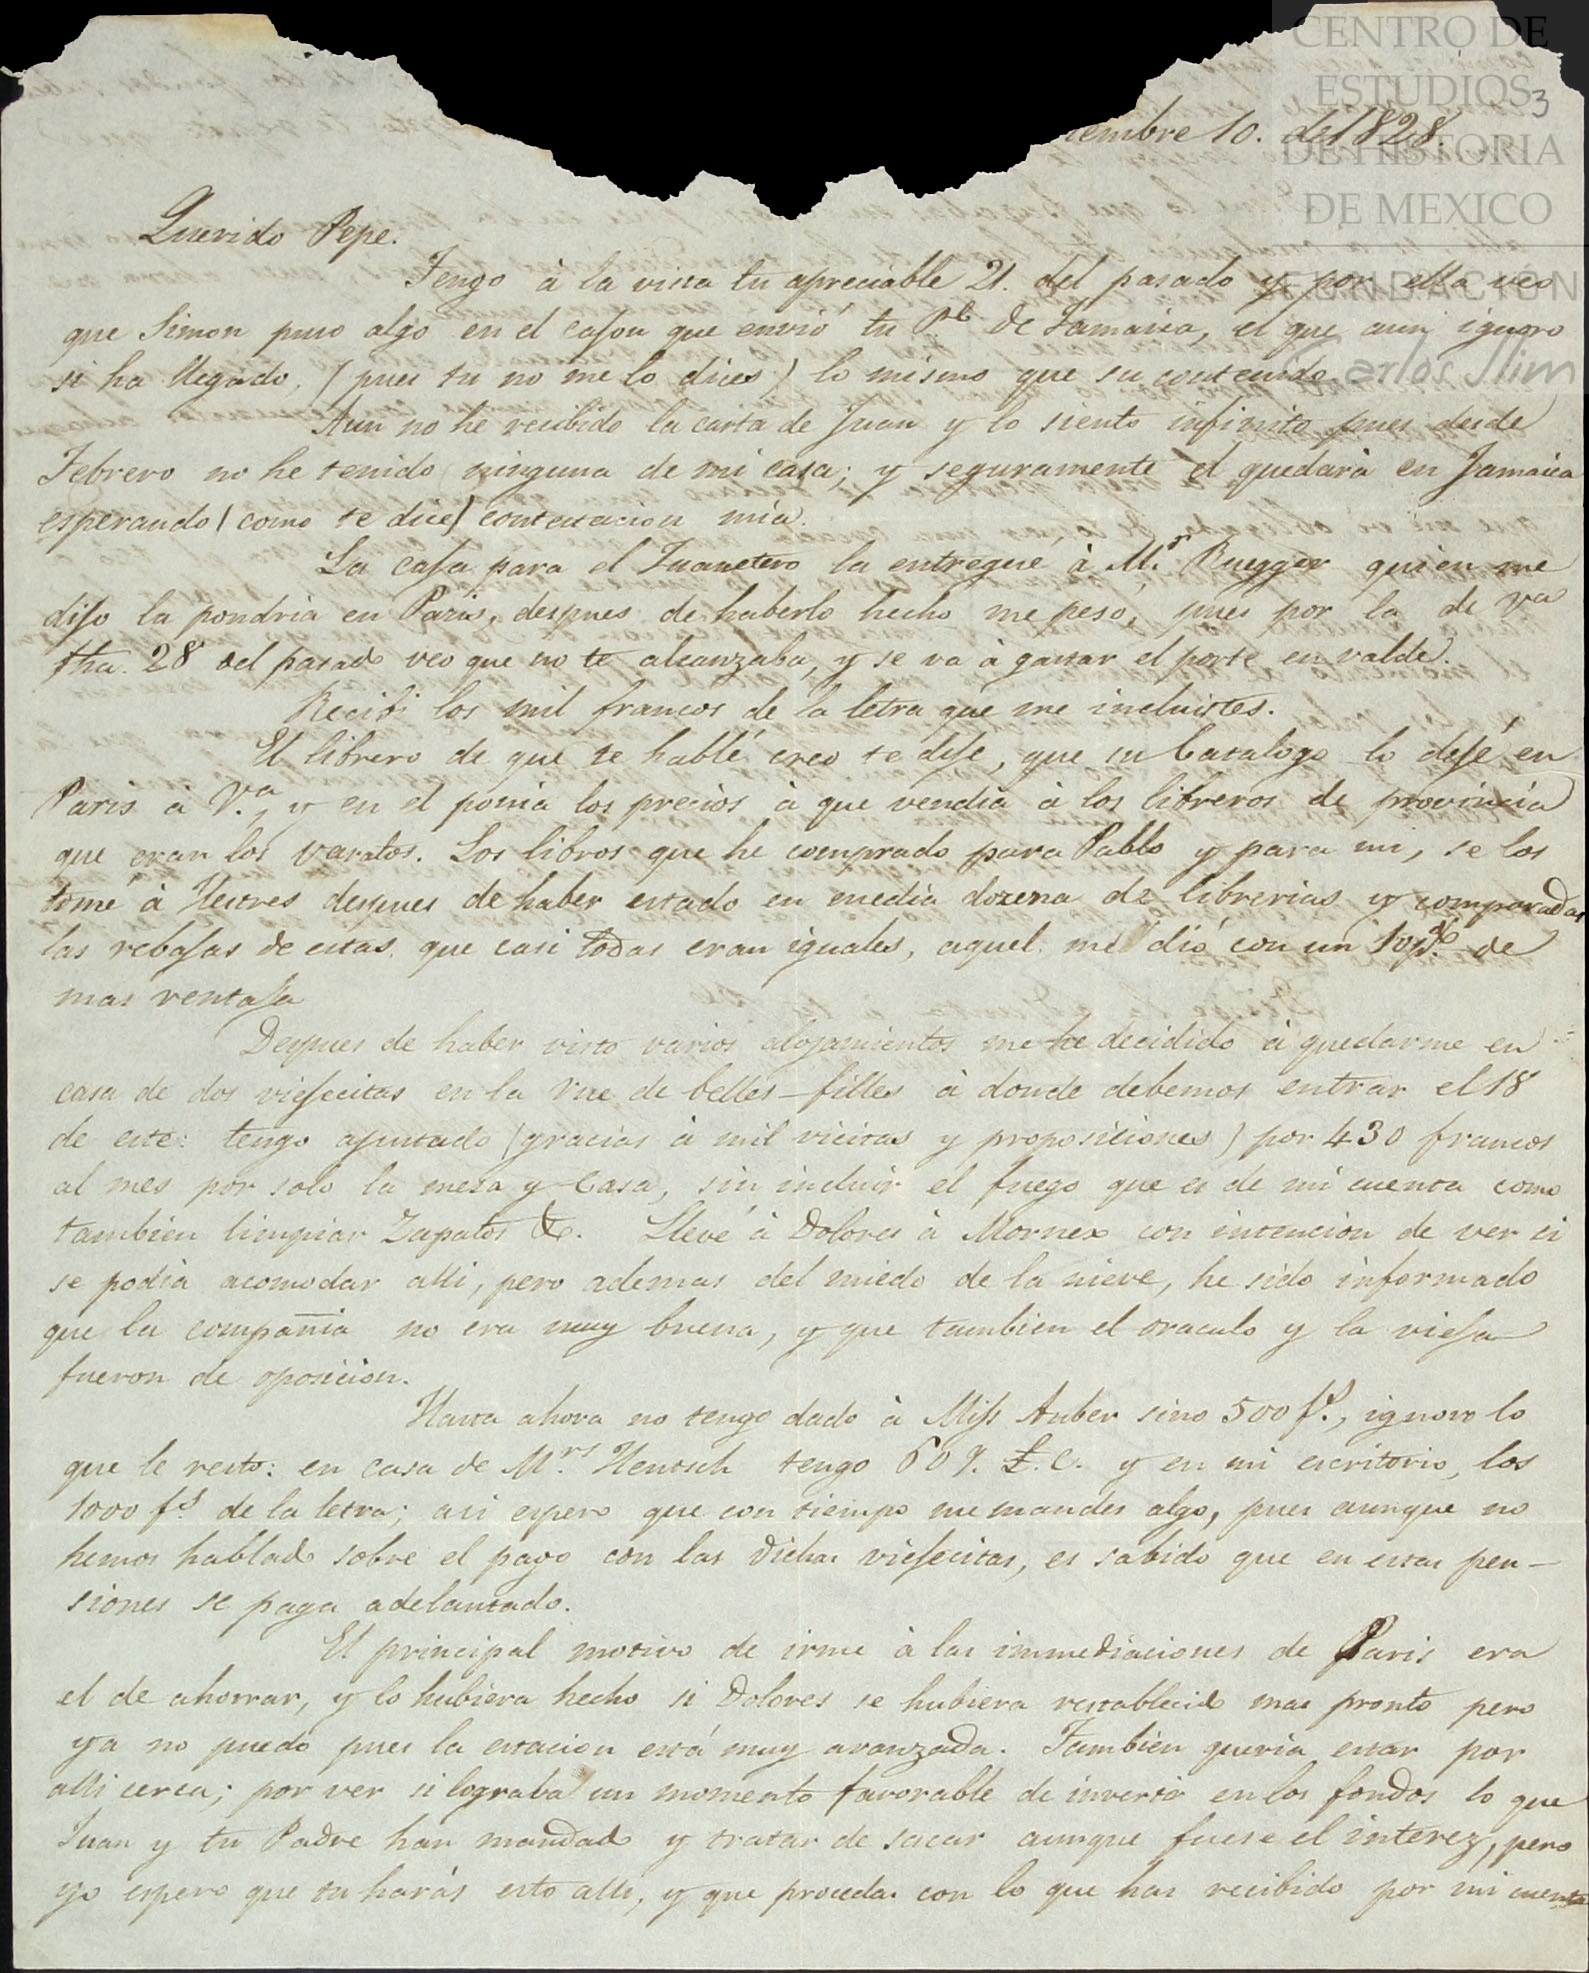 CENTRO DE
ESTUDIOS
DE HISTORIA
DE MEXICO
FUNDACIÓN
Carlos Slim
3
iembre 10. de 1828.
Querido Pepe.
Tengo à la vista tu apreciable 21. del pasado y por ella veo
que Simon puso algo en el cajon que envió tu Pe. de Jamaica, el que aun ignoro
si ha llegado, (pues tu no me lo dices) lo mismo que su contenido.
Aun no he recibido la carta de Juan y lo siento infinito pues desde
Febrero no he tenido ninguna de mi casa; y seguramente el quedarà en Jamaica
esperando (como te dice) contestacion mia.
La caja para el Juanetero la entregué à Mr. Ruegger quien me
dijo la pondria en Paris, despues de haberlo hecho me pesó, pues por la de Va
fha. 28 del pasado veo que no te alcanzaba, y se va à gastar el porte en valde.
Recibi los mil francos de la letra que me incluistes.
El librero de que te hablé creo te dije, que su Catalogo lo dejé en
Paris à V.a, y en el ponia los precios à que vendia à los libreros de provincia
que eran los varatos. Los libros que he comprado para Pablo y para mi, se los
tomé à Hestres despues de haber estado en media dozena de librerias y comparadas
las rebajas de estas que casi todas eran iguales, aquel me dió con un 10 p.% de
mas ventaja
Despues de haber visto varios alojamientos me he decidido à quedarme en
casa de dos viejecitas en la rue de belles-filles à donde debemos entrar el 18
de este: tengo ajustado (gracias à mil vicitas y proposiciones) por 430 francos
al mes por solo la mesa y Casa, sin incluir el fuego que es de mi cuenta como
tambien limpiar Zapatos &c. Llevé à Dolores à Mornex con intencion de ver si
se podia acomodar alli, pero ademas del miedo de la nieve, he sido informado
que la compañia no era muy buena, y que tambien el oraculo y la vieja
fueron de oposicion.
Hasta ahora no tengo dado à Miss Auber sino 500 fs., ignoro lo
que le resto: en casa de Mrs. Hentsch tengo 609. £. C. y en mi escritorio, los
1000 fs de la letra; asi espero que con tiempo me mandes algo, pues aunque no
hemos hablado sobre el pago con las dichas viejecitas, es sabido que en estas pen-
siones se paga adelantado.
El principal motivo de irme à las immediaciones de Paris era
el de ahorrar, y lo hubiera hecho si Dolores se hubiera restablecido mas pronto pero
ya no puedo pues la estacion está muy avanzada. Tambien queria estar por
alli cerca; por ver si lograba un momento favorable de invertir en los fondos lo que
Juan y tu Padre han mandado y tratar de sacar aunque fuese el interez, pero
yo espero que tu harás esto alli, y que procedas con lo que has recibido por mi cuenta